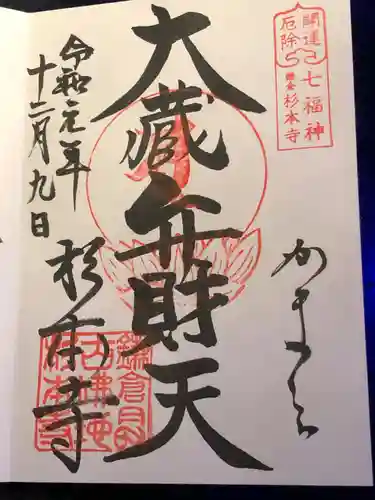 開運
厄除
七福神
鎌倉杉本寺
かまくら
大蔵弁財天
令和元年
十二月九日
杉本寺